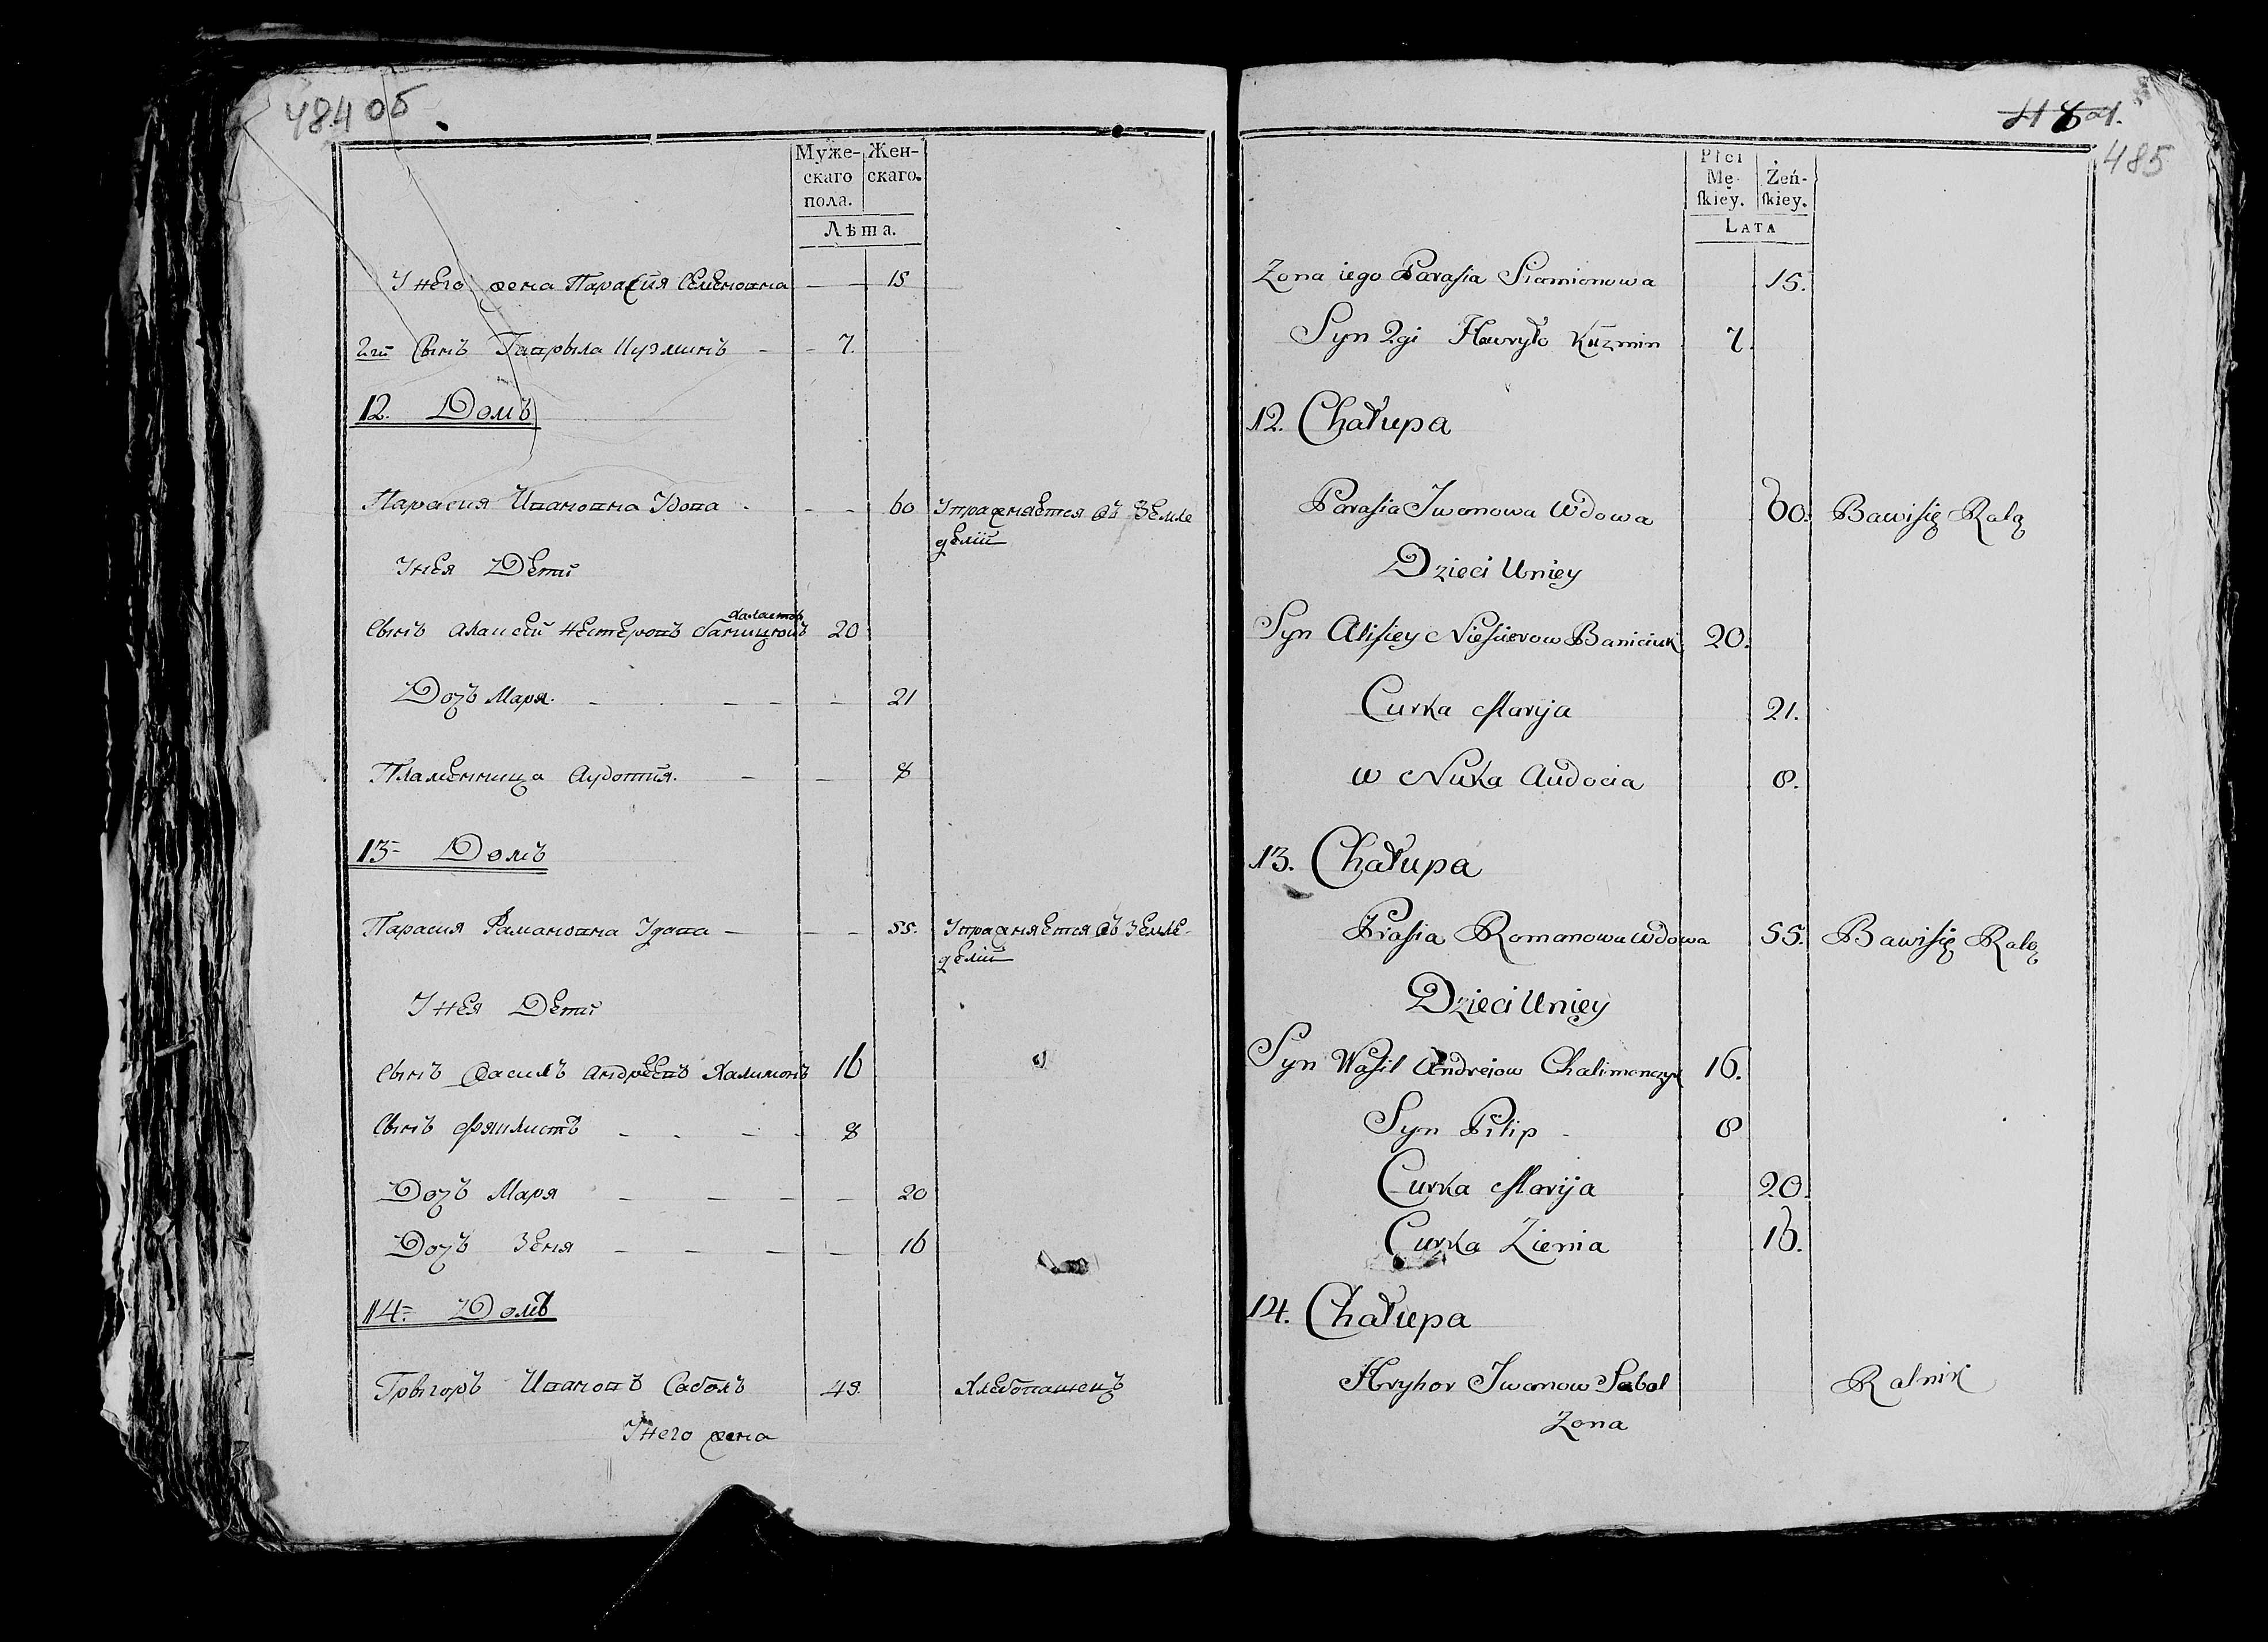 484 об
Муже-
скаго
пола.
Жен-
скаго.
Лѣта.
У него жена Парасия Семеновна — — 15
2гй Сынъ Гаврыла Кузминъ - - 7.
12. Домъ
Парасия Ивановна Удова - - 60 Упражняется въ Земле
делiи
У нея Дети
Халастъ
Сынъ Алисей Нестеровъ Баницюкъ 20
Дочь Маря. - - - - 21
Пламенница Аудотия. - - 8
13- Домъ
Парасия Рамановна Удава - - - 55. Упражняется въ Земле-
делiи
У нея Дети
Сынъ Василъ Андреевъ Халимонъ 16
Сынъ Филипъ - - - - 8
Дочь Маря - - - - - 20
Дочь Зеня - - - - - 16
14= Домъ
Грыгоръ Ивановъ Саболъ 49. Хлебопашецъ
У него жена
485
Płci
Mę-
ſkiey.
Żeń-
ſkiey.
LATA
Zona iego Parasia Siamionowa 15.
Syn 2gi Hawryło Kuzmin 7.
12. Chałupa
Parasia Iwonowa Wdowa 60. Bawi się Rolą
Dzieci Uniey
Syn Alisiey Niesterow Baniciuk 20.
Curka Marija 21.
w Nuka Audocia 8.
13. Chałupa
Prasia Romanowa Wdowa 55. Bawi się Rolą
Dzieci Uniey
Syn Wasil Andreiow Chalimonczyk 16.
Syn Pilip - 8
Curka Marija 20.
Curka Zienia 16.
14. Chałupa
Hryhor Iwonow Sabol Rolnik
Zona